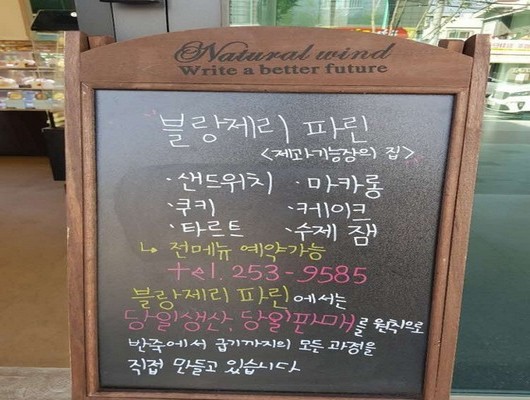 Natural wind
Write a better future
블랑제리 파린
<제과기능장의 집>
· 샌드위치 · 마카롱
· 쿠키 · 케이크
· 타르트 · 수제 잼
↳ 전메뉴 예약가능
tel. 253-9585
블랑제리 파린에서는
당일생산, 당일판매를 원칙으로
반죽에서 굽기까지의 모든 과정을
직접 만들고 있습니다